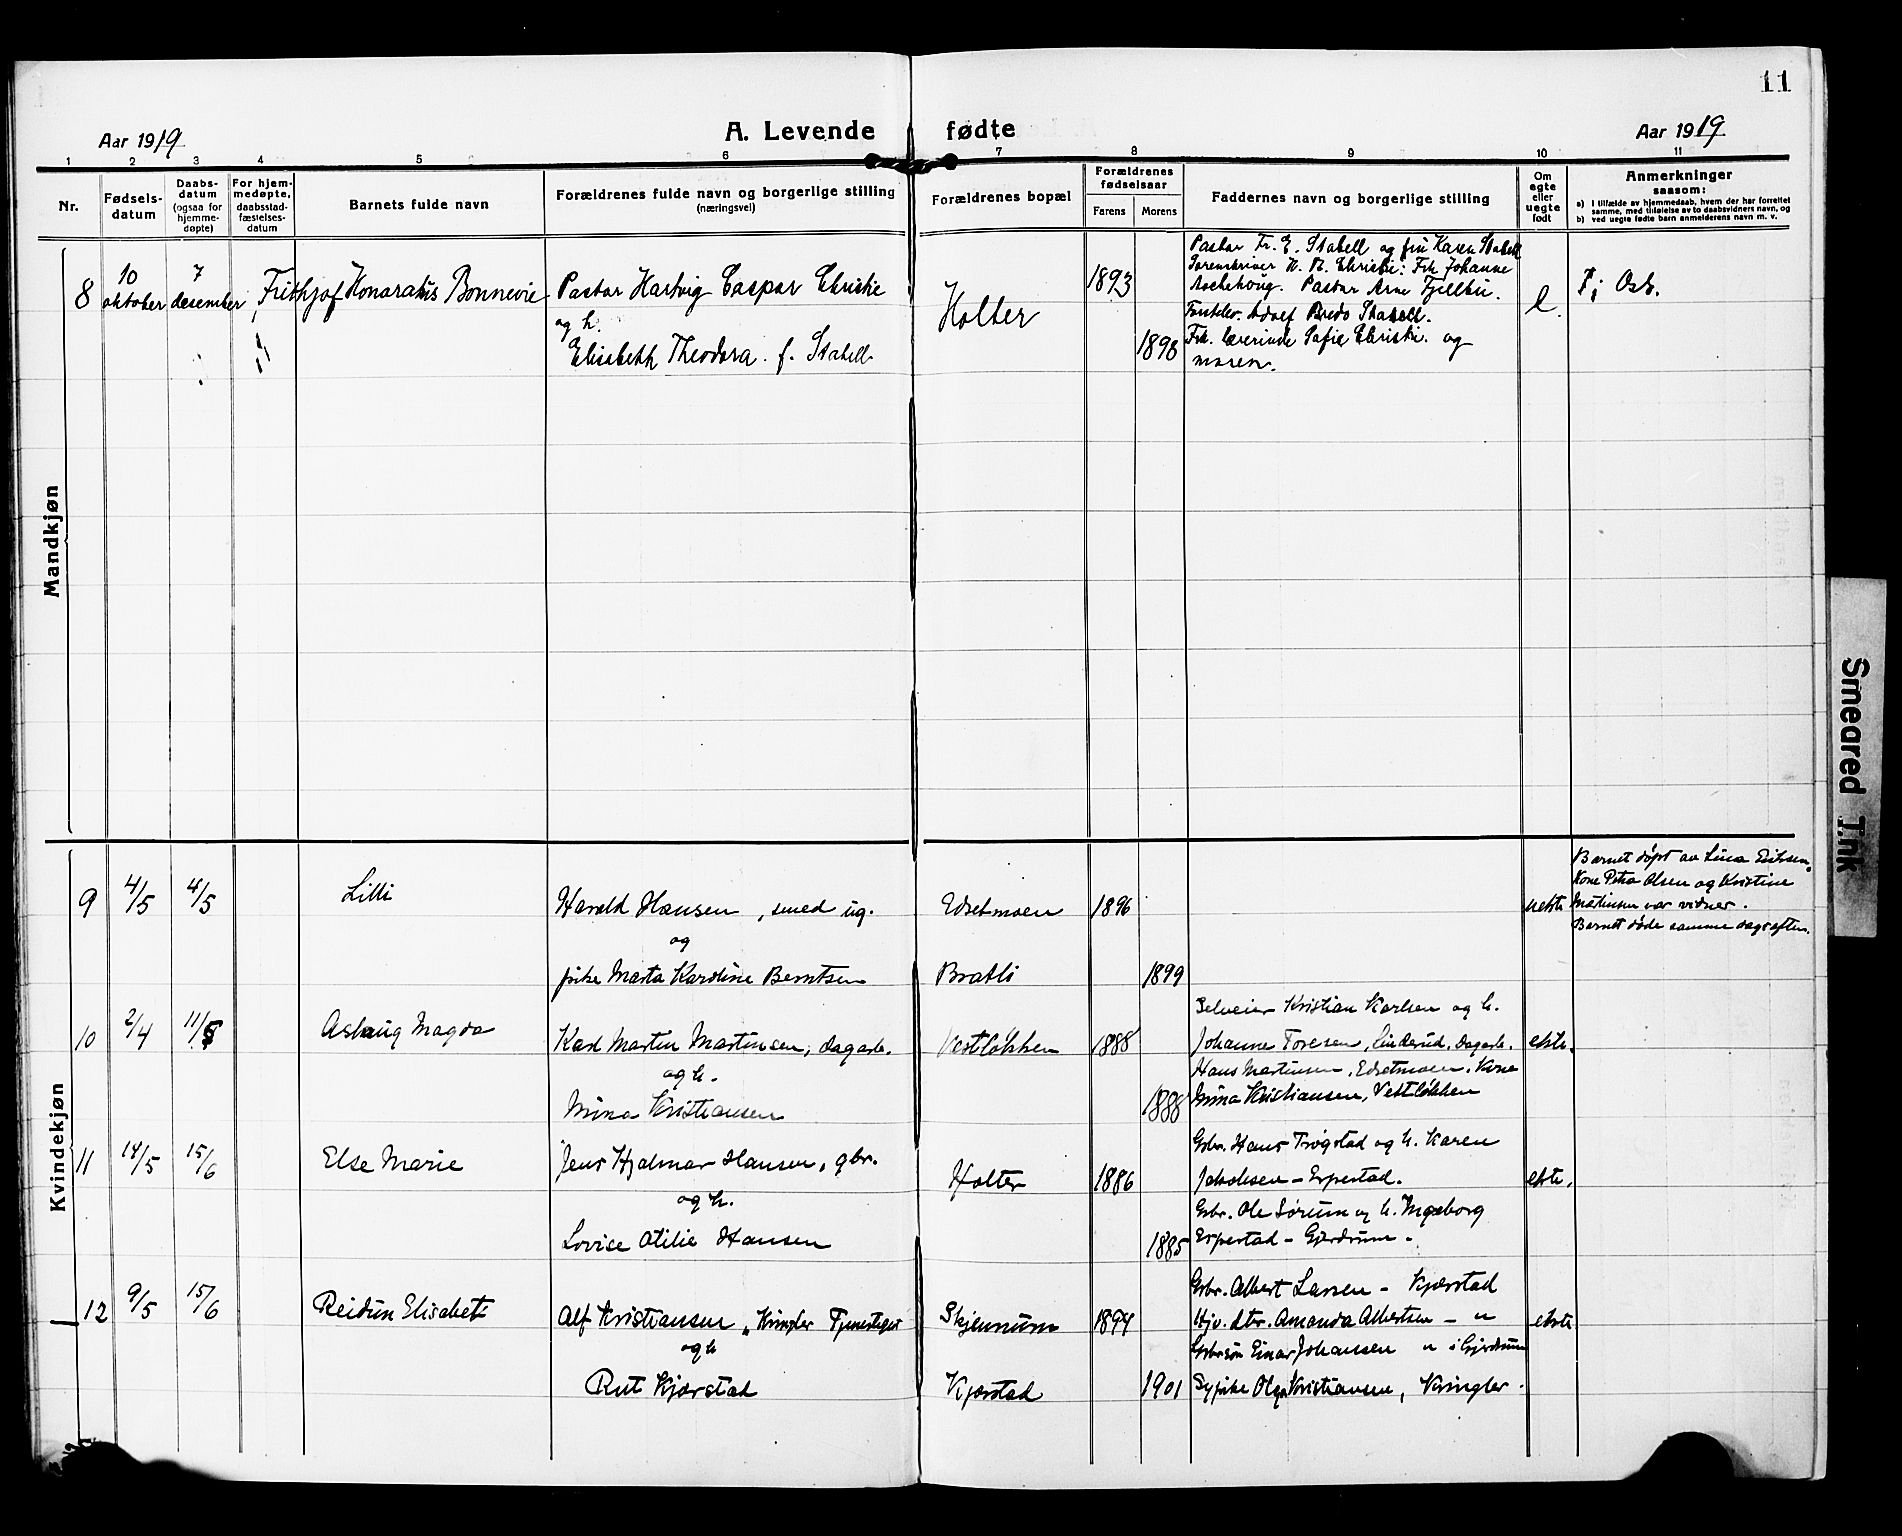 11
Aar 1919
A. Levende fødte
Aar 1919
1 2 3 4 5 6 7 8 9 10 11
Nr.
Fødsels-
datum
Daabs-
datum
(ogsaa for
hjemme-
døpte)
For hjem-
medøpte,
daabsstad-
fæstelses-
datum
Barnets fulde navn
Forældrenes fulde navn og borgerlige stilling
(næringsvei)
Forældrenes bopæl
Forældrenes
fødselsaar
Farens Morens
Faddernes navn og borgerlige stilling
Om
egte
eller
uegte
født
Anmerkninger
saasom:
a) i tilfælde av hjemmedaab, hvem der har forrettet
samme, med tilføielse av to daabsvidners navn, og
b) ved uegte fødte barn anmelderens navn m. v.
Mandkjøn
8
10
oktober
7
desember
Frithjof Honoratus Bonnevie
Pastor Hartvig Caspar Christie
og h.
Elisabeth Theodora f. Stabell
Holter
1893
1898
Pastor Fr. E. Stabell og fru Karen Stabell
Sorenskriver H. R. Christie: Frk Johanne
Pastor Arne Fjellbu.
Adolf Bredo Stabell.
Frk. Lærerinde Sofie Christie og
moren.
e.
Kvindekjøn
9
4/5
4/5
Lilli
Harald Hansen, smed ug.
og
pike Marta Karoline Berntsen
Edsetmoen
Bratli
1896
1899
uekte
Barnet døpt av Lina
Kone Petra Olsen og Kristine
Martinsen var vidner.
Barnet døde samme dags aften.
10
2/4
11/5
Aslaug Magda
Karl Martin Martinsen, dagarb.
og h.
Mina Kristiansen
Vestløkken
1888
1888
Selveier Kristian Karlsen og h.
Johanne Toresen, Linderud, Dagarb.
Hans Martinsen, Edsetmoen, Kone
Mina Kristiansen, Vestløkken
ekte.
11
14/5
15/6
Else Marie
Jens Hjalmar Hansen, gbr.
og h.
Lovise Otilie Hansen
Holter
1886
1885
Gbr. Hans Trøgstad og h. Karen
Jakobsen – Erpestad.
Gbr. Ole Sørum og h. Ingeborg
Erpestad – Gjerdrum –
ekte.
12
9/5
15/6
Reidun Elisabet
Alf Kristiansen, Kringler
og h
Rut Kjærstad
Skjennum
Kjærstad
1894
1901
Gbr. Albert Larsen – Kjærstad
Hjv. dtr. Amanda Albertsen – "
Gbrsøn Einar Johanssen " i Gjerdrum
Sypike Olga Kristiansen, Kringler.
ekte
Smeared Ink